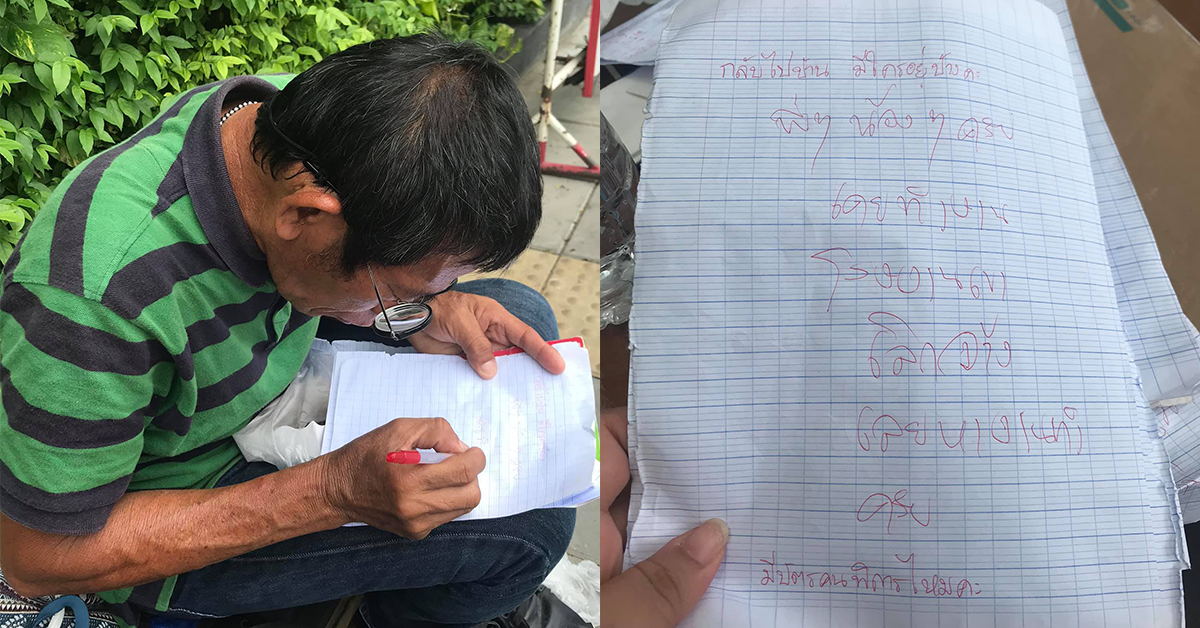 กลับไปบ้าน มีใครอยู่บ้างคะ
พี่ๆ น้องๆ ครับ
เคยทำงาน
โรงงานเขา
เลิกจ้าง
เลยหางานทำ
ครับ
มีบัตรคนพิการไหมคะ